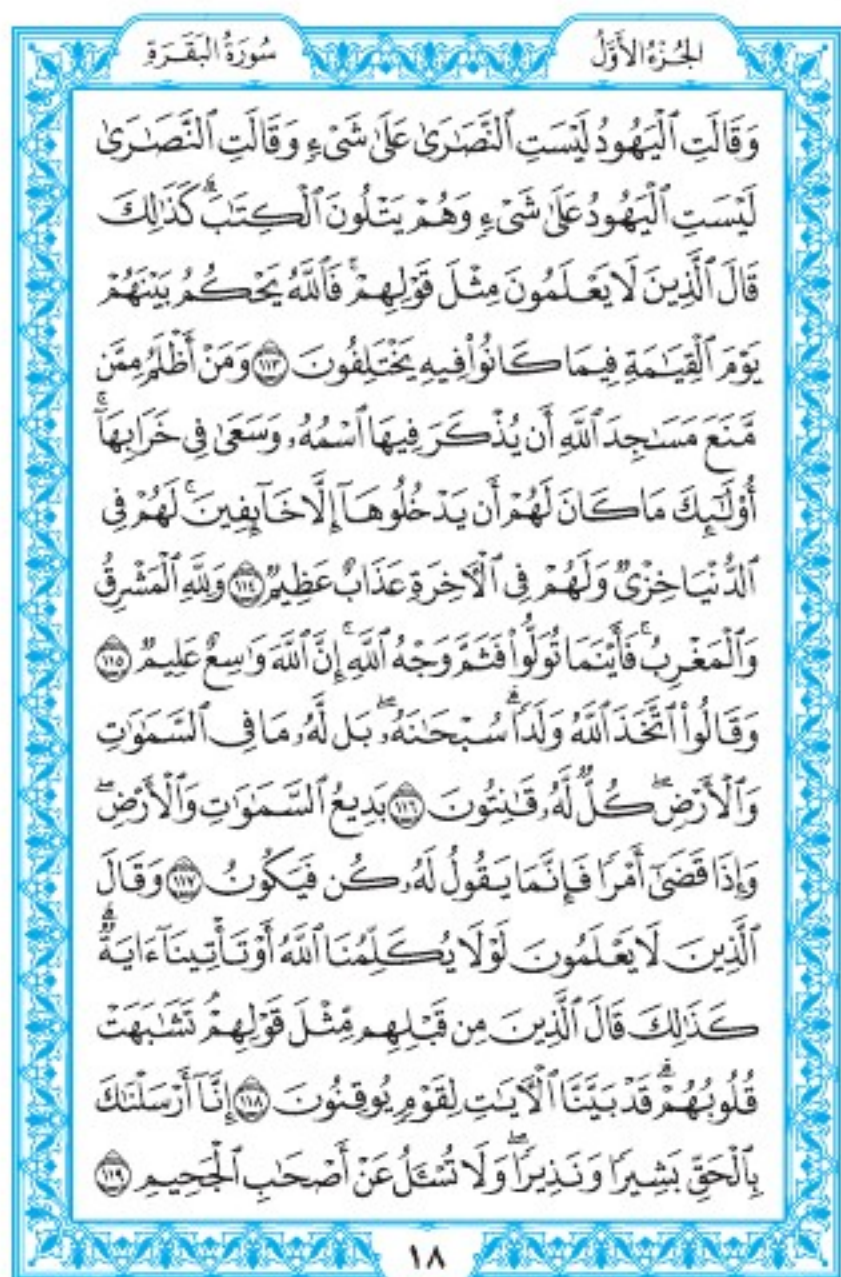 الجُزْءُ الأَوَّلُ
سُورَةُ البَقَرَةِ
وَقَالَتِ ٱلْيَهُودُ لَيْسَتِ ٱلنَّصَـٰرَىٰ عَلَىٰ شَىْءٍ وَقَالَتِ ٱلنَّصَـٰرَىٰ
لَيْسَتِ ٱلْيَهُودُ عَلَىٰ شَىْءٍ وَهُمْ يَتْلُونَ ٱلْكِتَـٰبَ ۗ كَذَٰلِكَ
قَالَ ٱلَّذِينَ لَا يَعْلَمُونَ مِثْلَ قَوْلِهِمْ ۚ فَٱللَّهُ يَحْكُمُ بَيْنَهُمْ
يَوْمَ ٱلْقِيَـٰمَةِ فِيمَا كَانُوا۟ فِيهِ يَخْتَلِفُونَ ١١٣ وَمَنْ أَظْلَمُ مِمَّن
مَّنَعَ مَسَـٰجِدَ ٱللَّهِ أَن يُذْكَرَ فِيهَا ٱسْمُهُۥ وَسَعَىٰ فِى خَرَابِهَآ ۚ
أُو۟لَـٰٓئِكَ مَا كَانَ لَهُمْ أَن يَدْخُلُوهَآ إِلَّا خَآئِفِينَ ۚ لَهُمْ فِى
ٱلدُّنْيَا خِزْىٌ وَلَهُمْ فِى ٱلْـَٔاخِرَةِ عَذَابٌ عَظِيمٌ ١١٤ وَلِلَّهِ ٱلْمَشْرِقُ
وَٱلْمَغْرِبُ ۚ فَأَيْنَمَا تُوَلُّوا۟ فَثَمَّ وَجْهُ ٱللَّهِ ۚ إِنَّ ٱللَّهَ وَٰسِعٌ عَلِيمٌ ١١٥
وَقَالُوا۟ ٱتَّخَذَ ٱللَّهُ وَلَدًا ۗ سُبْحَـٰنَهُۥ ۖ بَل لَّهُۥ مَا فِى ٱلسَّمَـٰوَٰتِ
وَٱلْأَرْضِ ۖ كُلٌّ لَّهُۥ قَـٰنِتُونَ ١١٦ بَدِيعُ ٱلسَّمَـٰوَٰتِ وَٱلْأَرْضِ ۖ
وَإِذَا قَضَىٰٓ أَمْرًا فَإِنَّمَا يَقُولُ لَهُۥ كُن فَيَكُونُ ١١٧ وَقَالَ
ٱلَّذِينَ لَا يَعْلَمُونَ لَوْلَا يُكَلِّمُنَا ٱللَّهُ أَوْ تَأْتِينَآ ءَايَةٌ ۗ
كَذَٰلِكَ قَالَ ٱلَّذِينَ مِن قَبْلِهِم مِّثْلَ قَوْلِهِمْ ۘ تَشَـٰبَهَتْ
قُلُوبُهُمْ ۗ قَدْ بَيَّنَّا ٱلْـَٔايَـٰتِ لِقَوْمٍ يُوقِنُونَ ١١٨ إِنَّآ أَرْسَلْنَـٰكَ
بِٱلْحَقِّ بَشِيرًا وَنَذِيرًا ۖ وَلَا تُسْـَٔلُ عَنْ أَصْحَـٰبِ ٱلْجَحِيمِ ١١٩
١٨